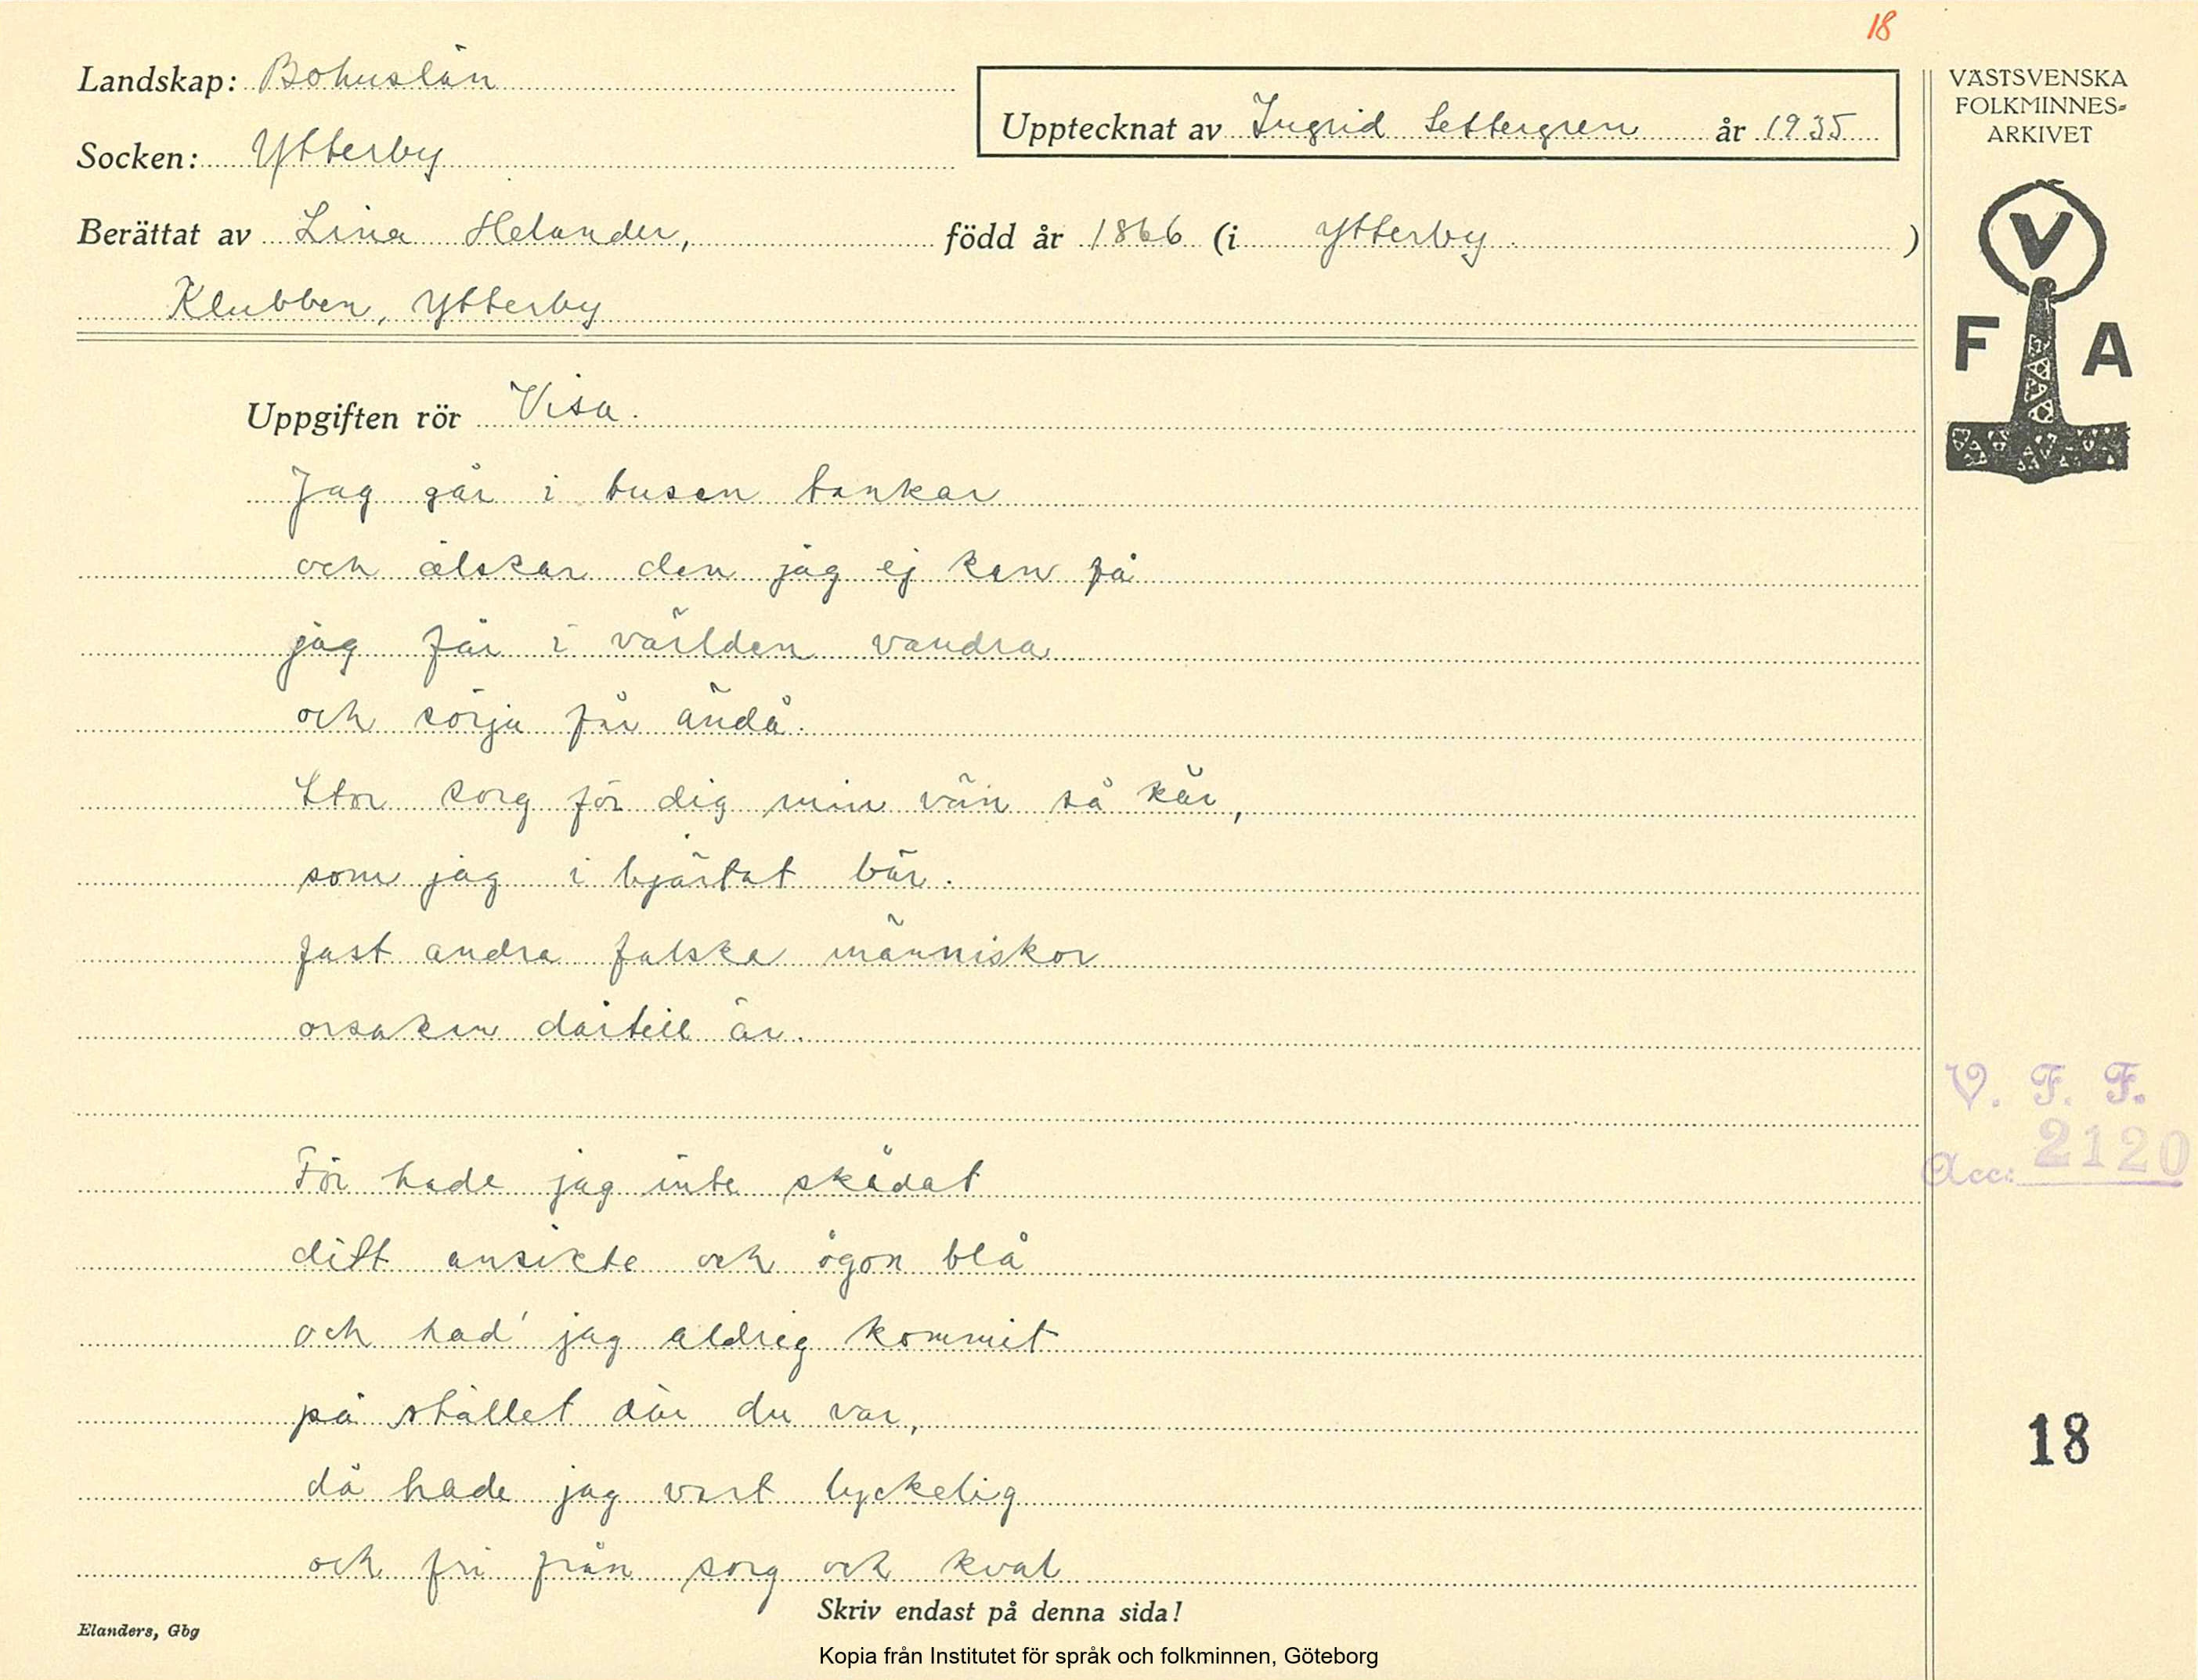 18
Landskap: Bohuslän
Socken: Ytterby
Upptecknat av Ingrid Settergren år 1935
Berättat av Lina Helander, född år 1866 (i Ytterby )
Klubben, Ytterby
VÄSTSVENSKA
FOLKMINNES-
ARKIVET
V
F A
Uppgiften rör Visa.
Jag går i tusen tankar
och älskar den jag ej kan få
jag får i världen vandra
och sörja får ändå.
Stor sorg för dig min vän så kär,
som jag i hjärtat bär.
fast andra falska människor
orsaken därtill är.
För hade jag inte skådat
ditt ansikte och ögon blå
och had' jag aldrig kommit
på stället där du var,
då hade jag vart lyckelig
och fri från sorg och kval
V. F. F.
Acc: 2120
18
Skriv endast på denna sida!
Elanders, Gbg
Kopia från Institutet för språk och folkminnen, Göteborg